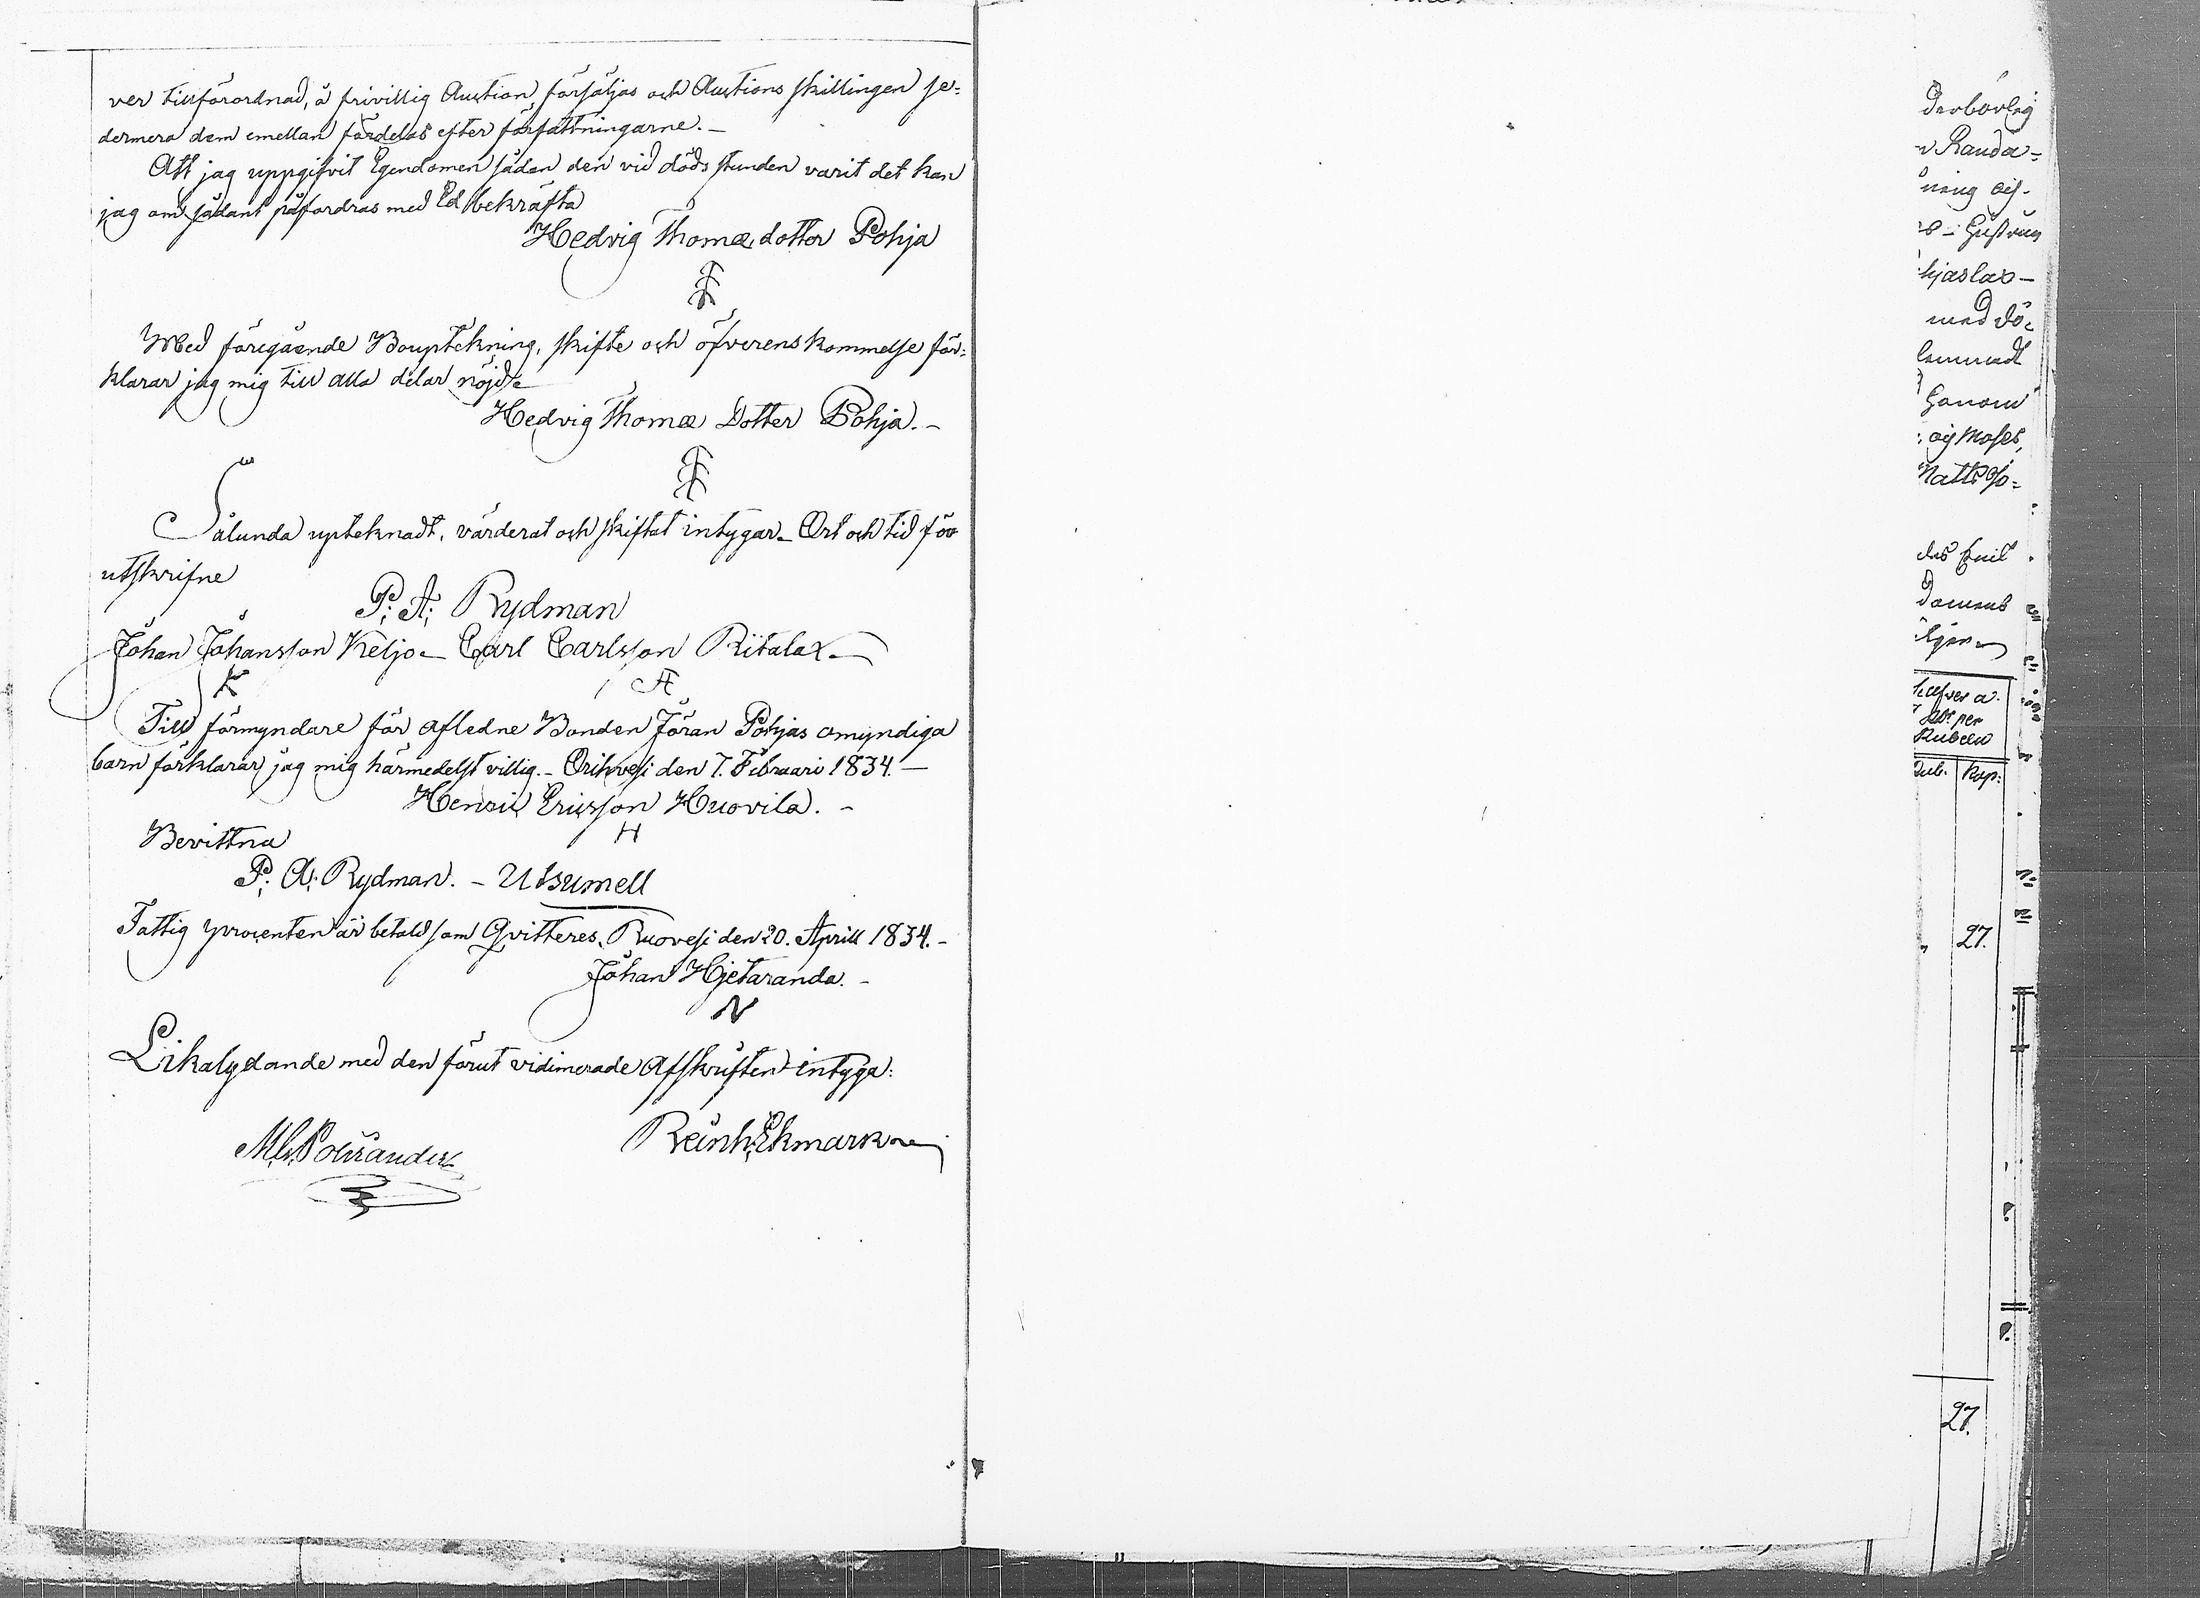 ver tillförordnad, å frivillig Auction, försäljas och Auctions skillingen se=
dermera dem emellan fördelas efter författningarne. -
Att jag uppgifvit Egendomen sådan den vid döds stunden varit det kan
jag om sådant påfordras med Ed bekräfta
Hedvig Thomæ dotter Pohja
Med föregående Bouptekning, skifte och öfverens kommelse för=
klarar jag mig till alla delar nöjd
Hedvig Thomæ Dotter Pohja. -
Sålunda upteknadt, värderat och skiftat intygar. Ort och tid för
utskrifne
P: A: Rydman
Johan Johansson Keljo - Carl Carlsson Ritala
K A
Till förmyndare för afledne Bonden Jöran Pohjas omyndiga
barn förklarar jag mig härmedelst villig. - Orihvesi den 7. Februari 1834. -
Henric Ericsson Huovila. -
H
Bevittna
P: A: Rydman. -
Fattig procenten är betald som Qvitteres. Ruovesi den 20. Aprill 1834. -
Johan Hjetaranda. -
N
Likalydande med den förut vidimerade Afskriften intyga:
Reinh: Ekmark
derborlig
hjaslax -
med dö=
Genom
Moses,
Rubeln
Kop:
27.
27.